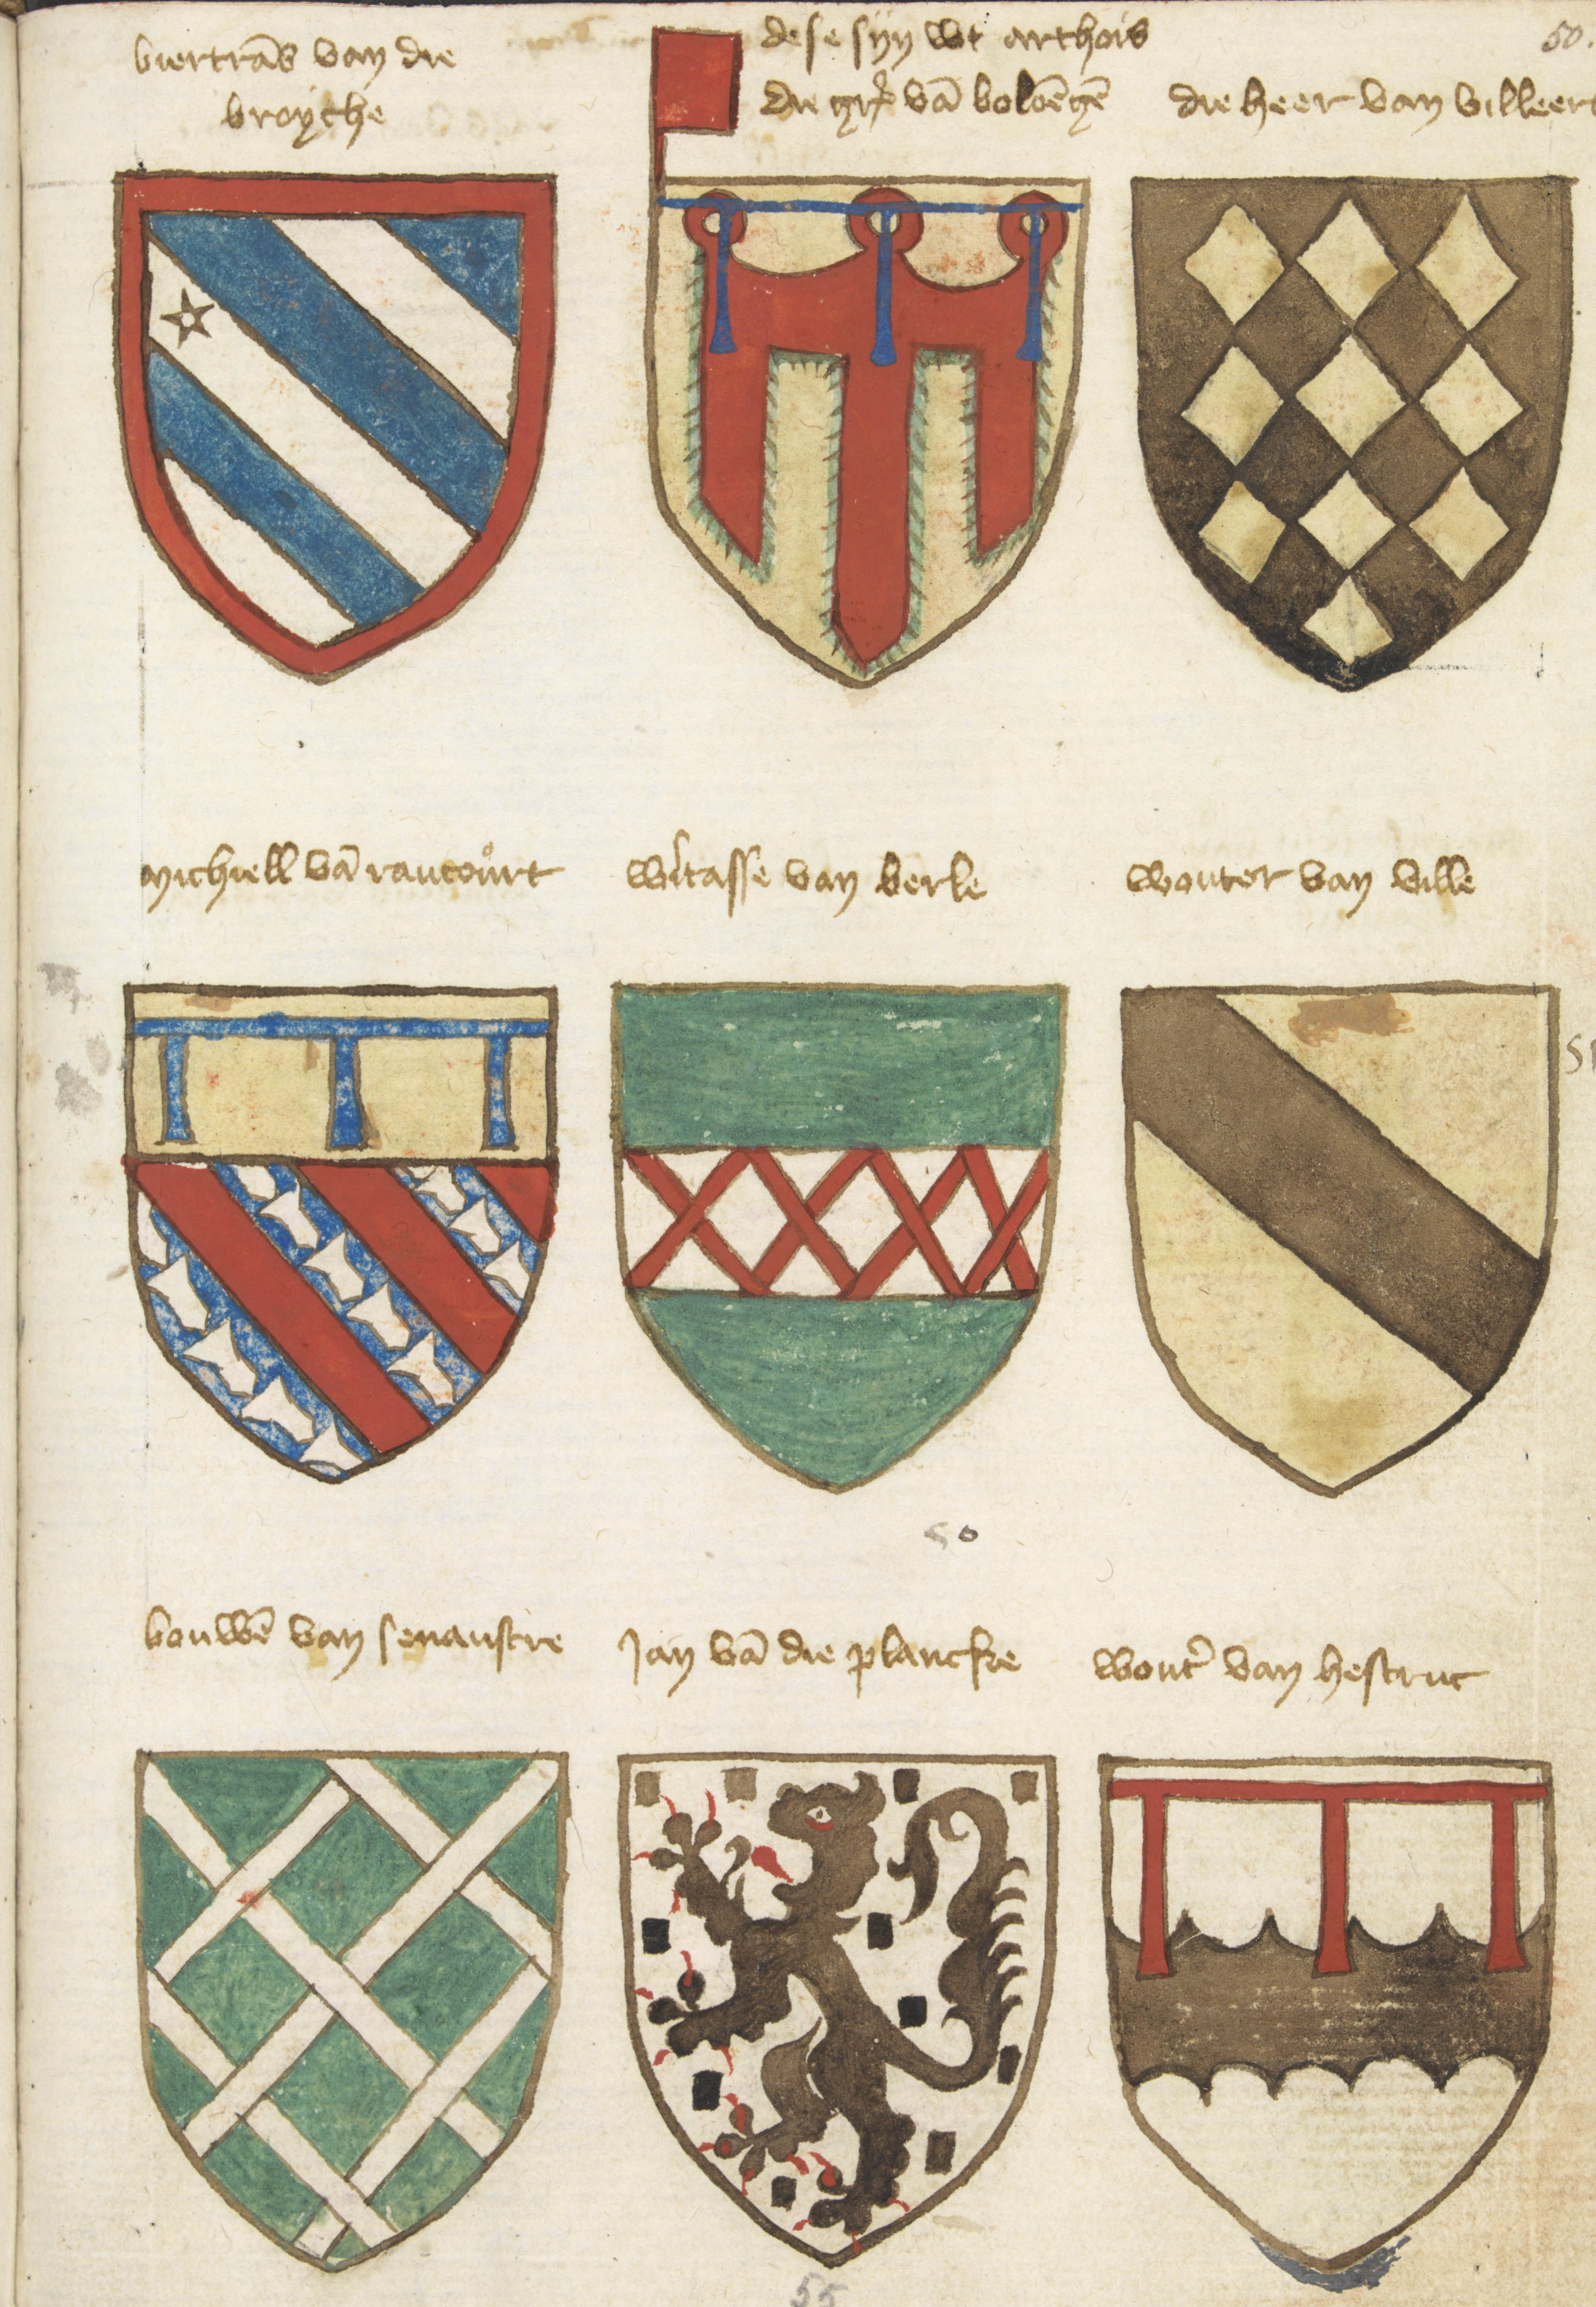 biertrās van die
broyche
dese syn wt arthois
die grē vā boloēgē
50.
die heer van villeers
michiell vā raucourt
witasse van berle
wouter van ville
51
50
bouwē van senaustre
Jan vā die plancke
wout' van hestrut
55